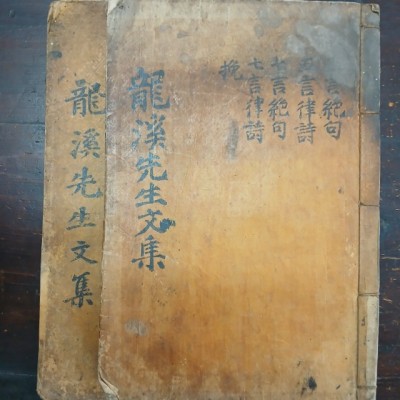 言絶句
五言律詩
七言絶句
七言律詩
挽
龍溪先生文集
龍溪先生文集